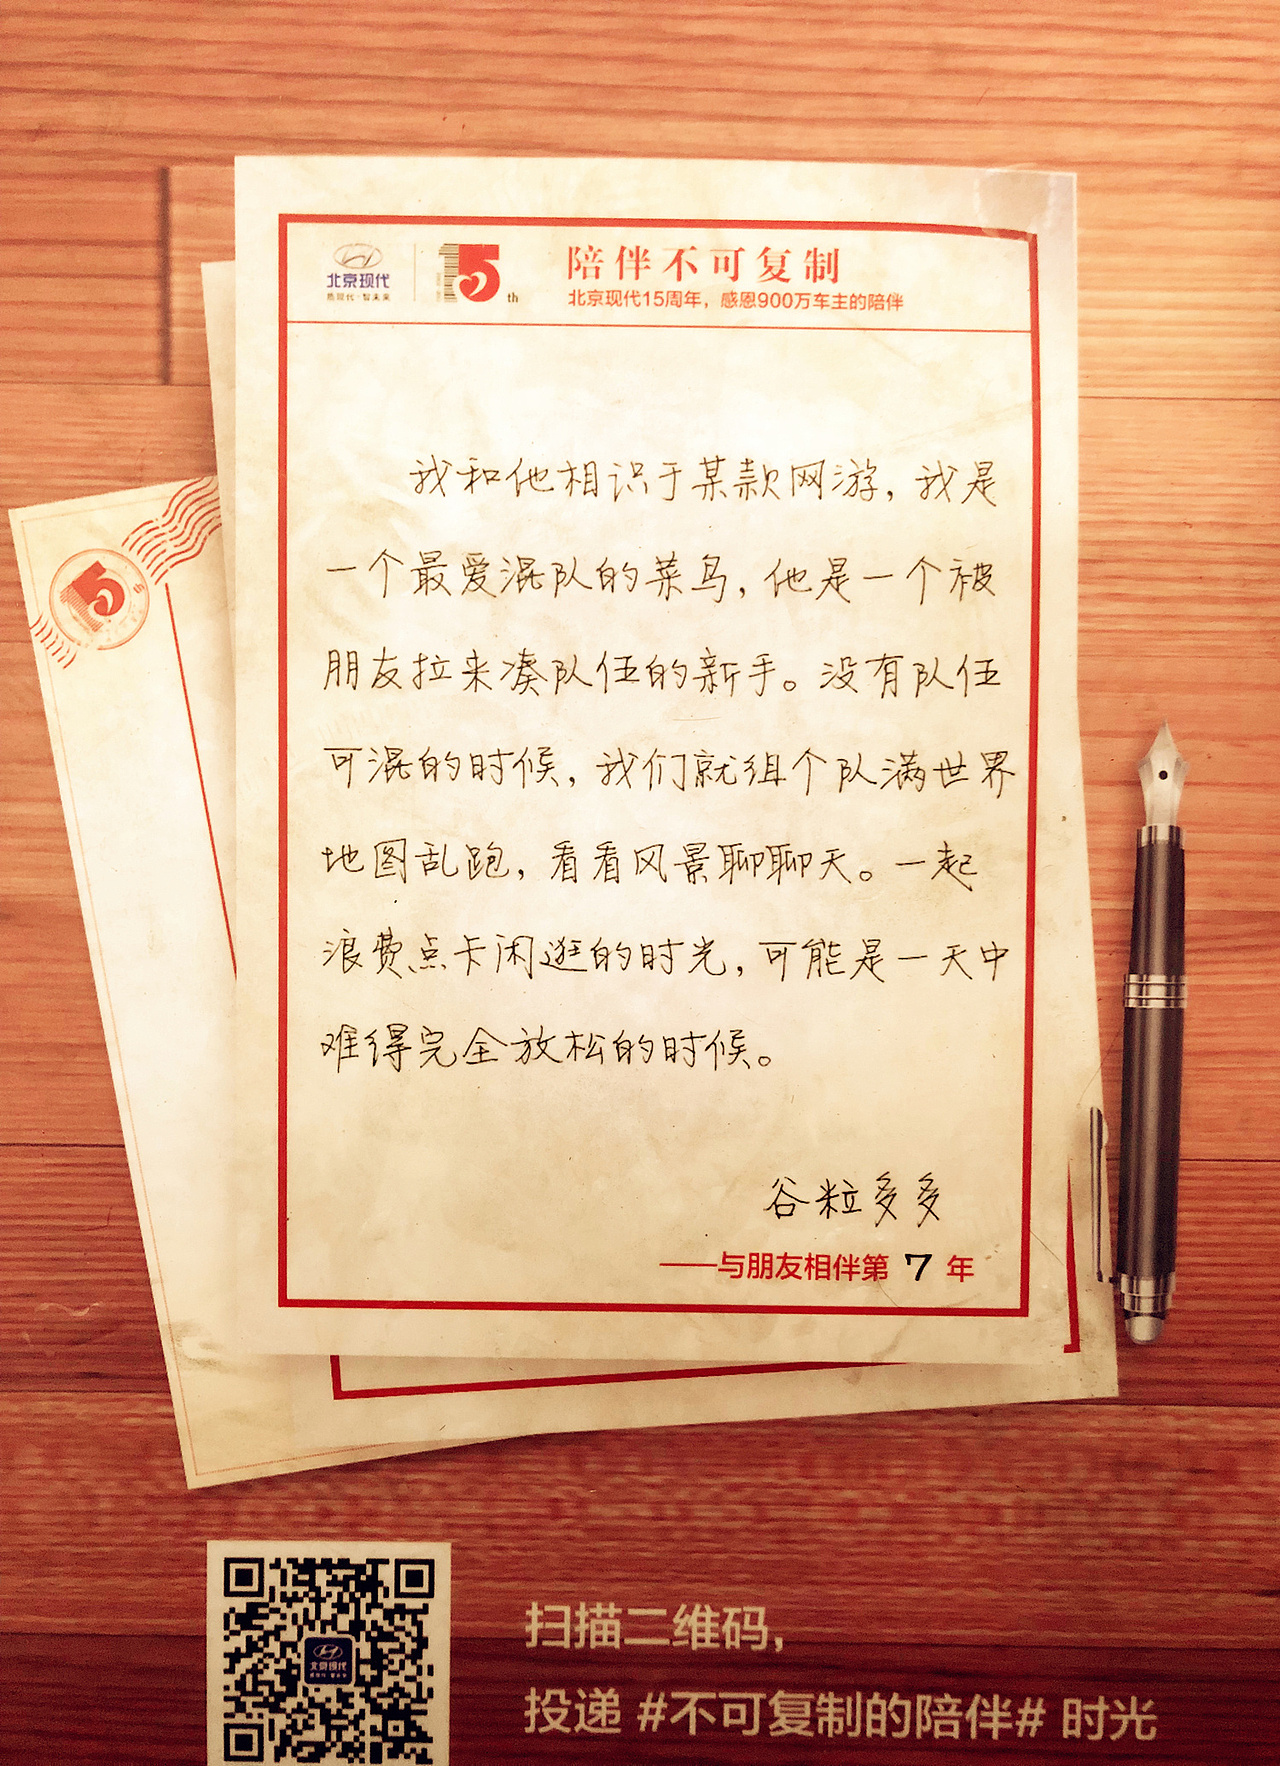 北京现代
15th
陪伴不可复制
北京现代15周年，感恩900万车主的陪伴
我和他相识于某款网游，我是
一个最爱混队的菜鸟，他是一个被
朋友拉来凑队伍的新手。没有队伍
可混的时候，我们就组个队满世界
地图乱跑，看看风景聊聊天。一起
浪费点卡闲逛的时光，可能是一天中
难得完全放松的时候。
谷粒多多
——与朋友相伴第 7 年
15
北京现代
扫描二维码，
投递 #不可复制的陪伴# 时光